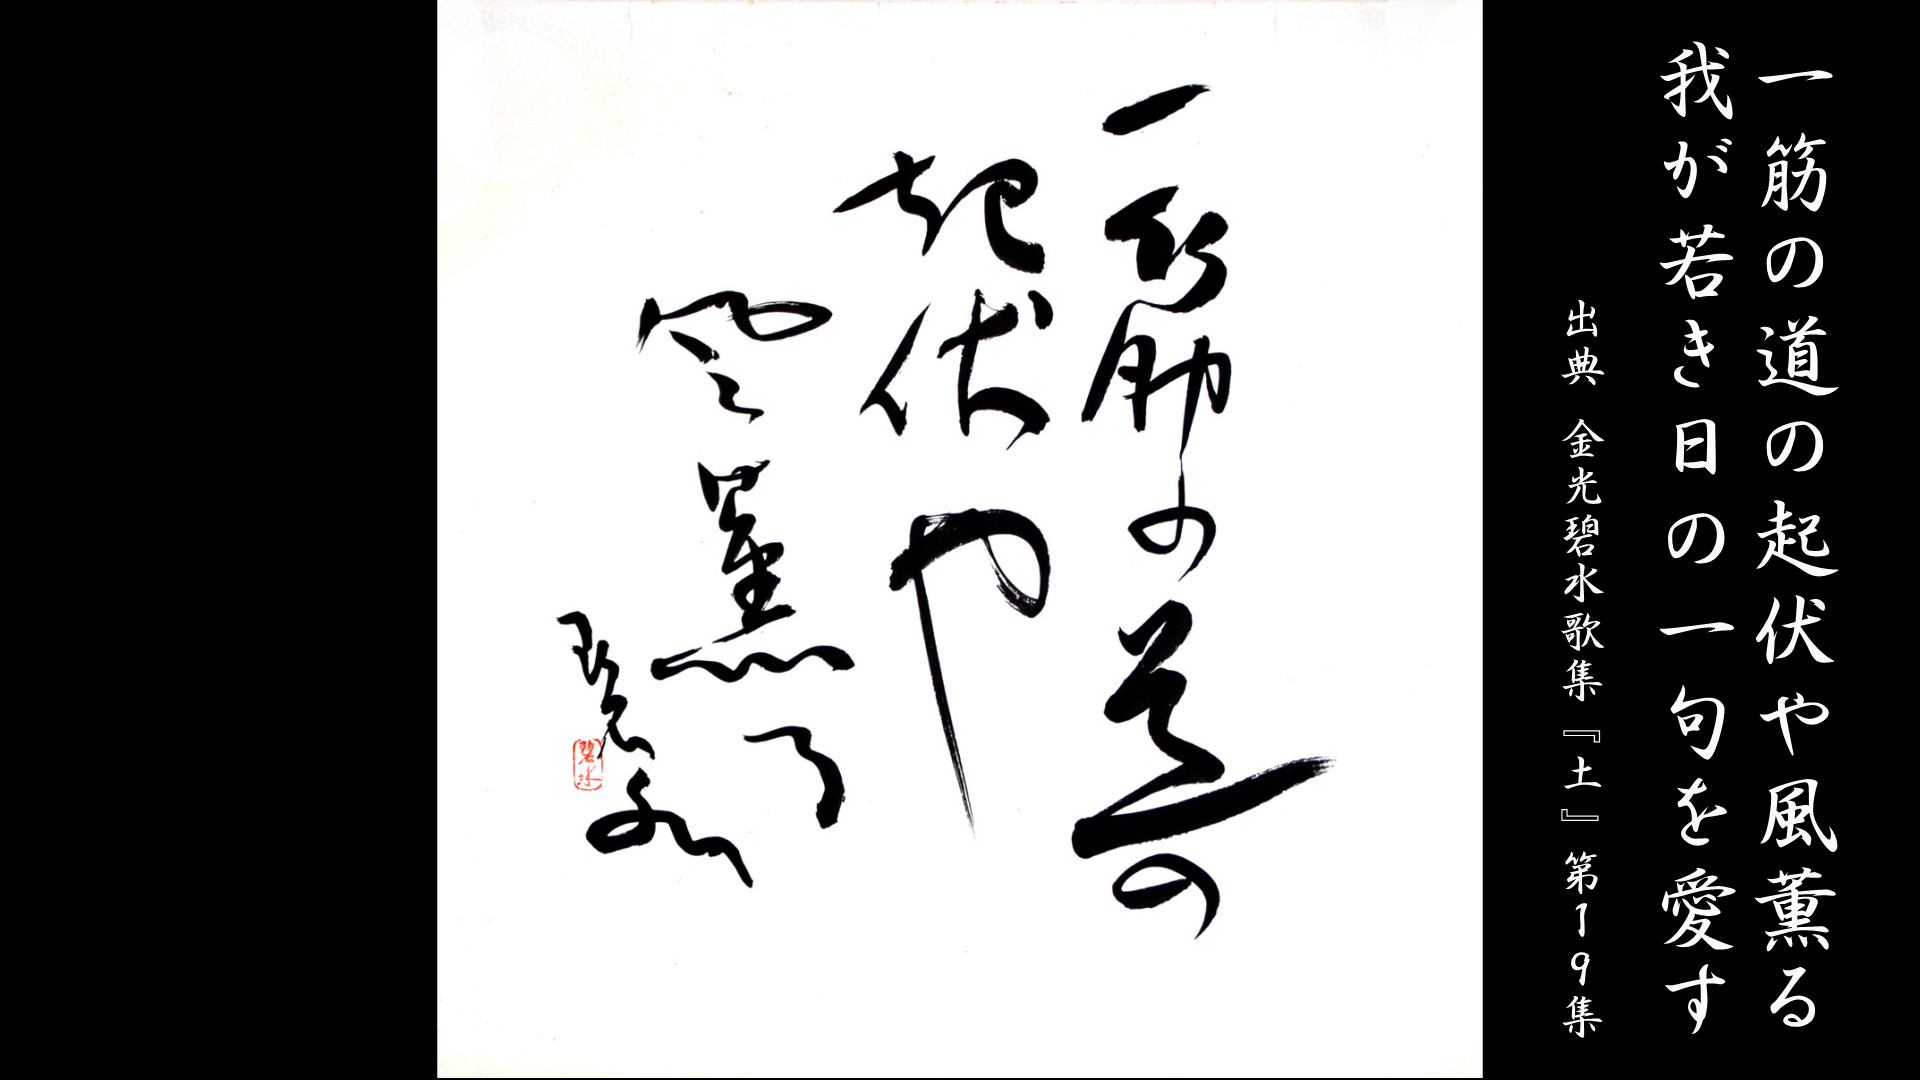 一筋の道の起伏や風薫る
我が若き日の一句を愛す
出典 金光碧水歌集『土』第19集
一筋の道の
起伏や
風薫る
碧水
碧水